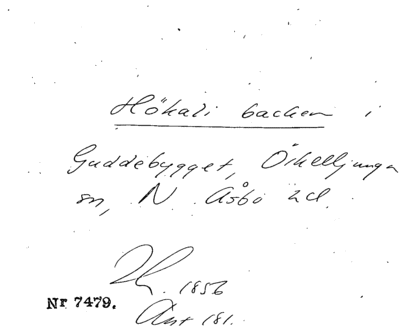 Hökali backen i
Guddebygget, Örkelljunga
sn, N. Åsbo hd.
1856
Nr 7479.
Ant 181.